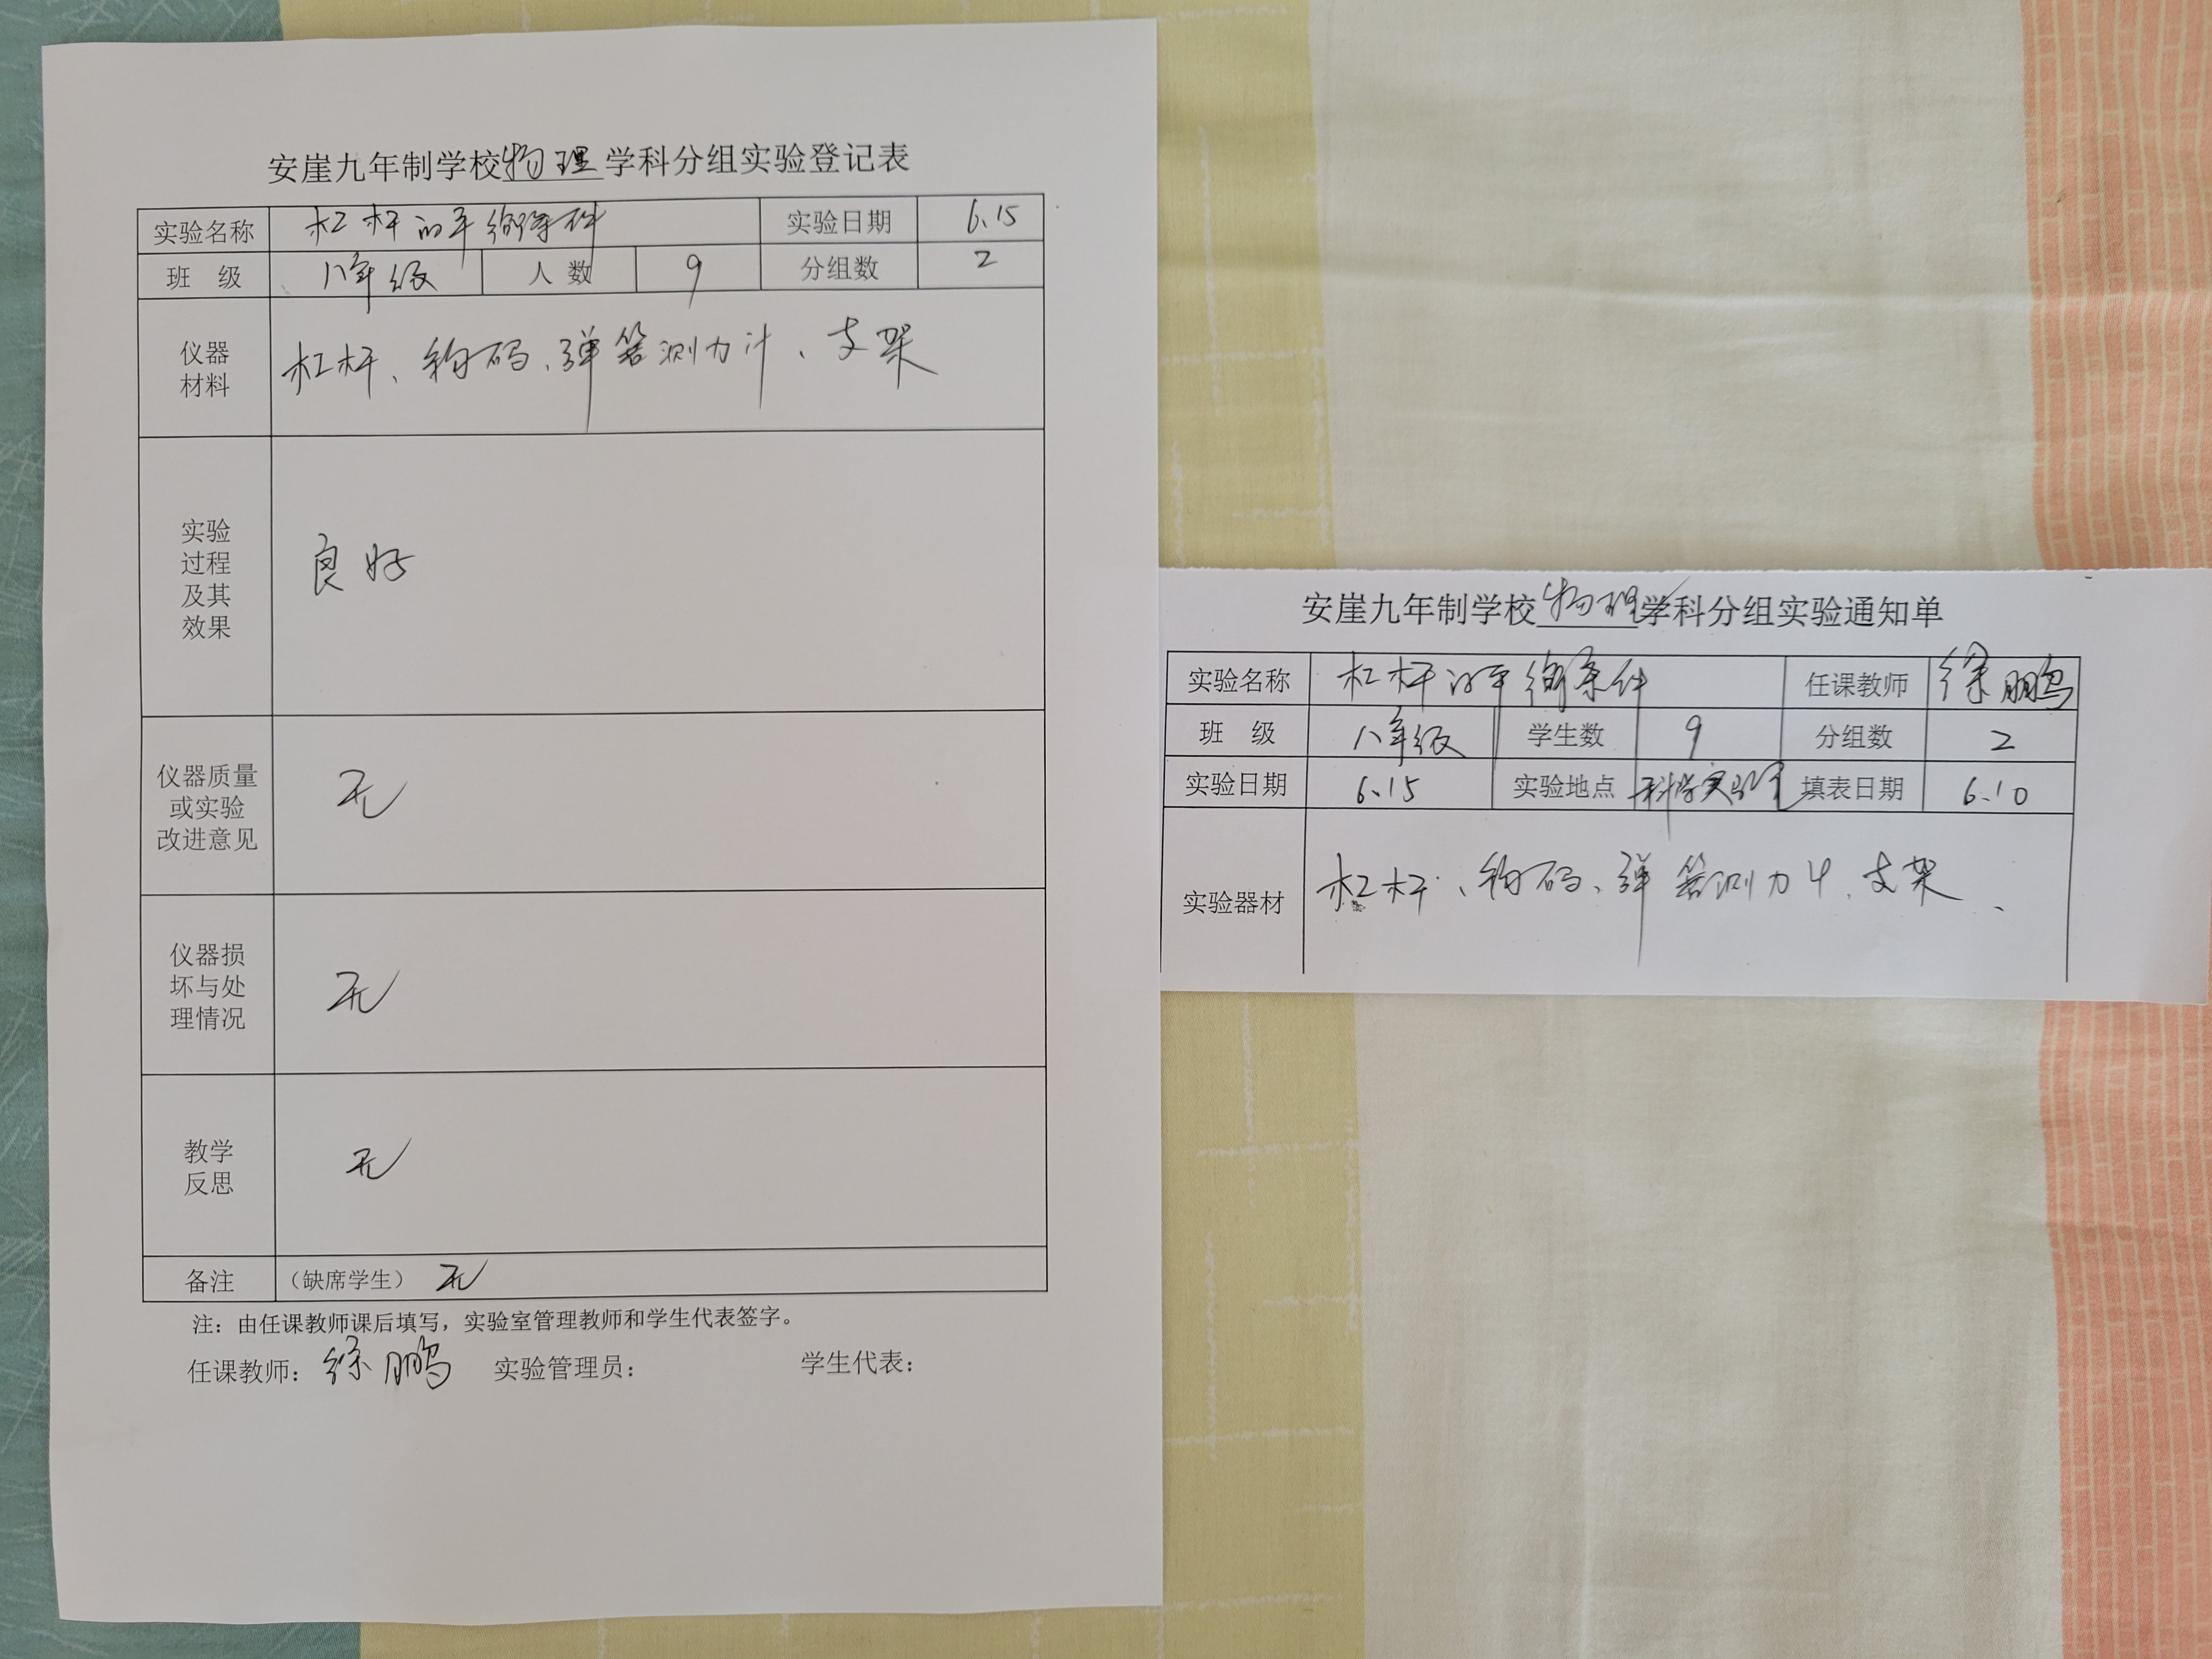 安崖九年制学校物理学科分组实验登记表
实验名称 杠杆的平衡条件 实验日期 6.15
班 级 八年级 人数 9 分组数 2
仪器
材料
杠杆、钩码、弹簧测力计、支架
实验
过程
及其
效果
良好
仪器质量
或实验
改进意见
无
仪器损
坏与处
理情况
无
教学
反思
无
备注 （缺席学生） 无
注：由任课教师课后填写，实验室管理教师和学生代表签字。
任课教师：徐鹏 实验管理员： 学生代表：
安崖九年制学校物理学科分组实验通知单
实验名称 杠杆的平衡条件 任课教师 徐鹏
班 级 八年级 学生数 9 分组数 2
实验日期 6.15 实验地点 科学实验室 填表日期 6.10
实验器材 杠杆、钩码、弹簧测力计、支架、